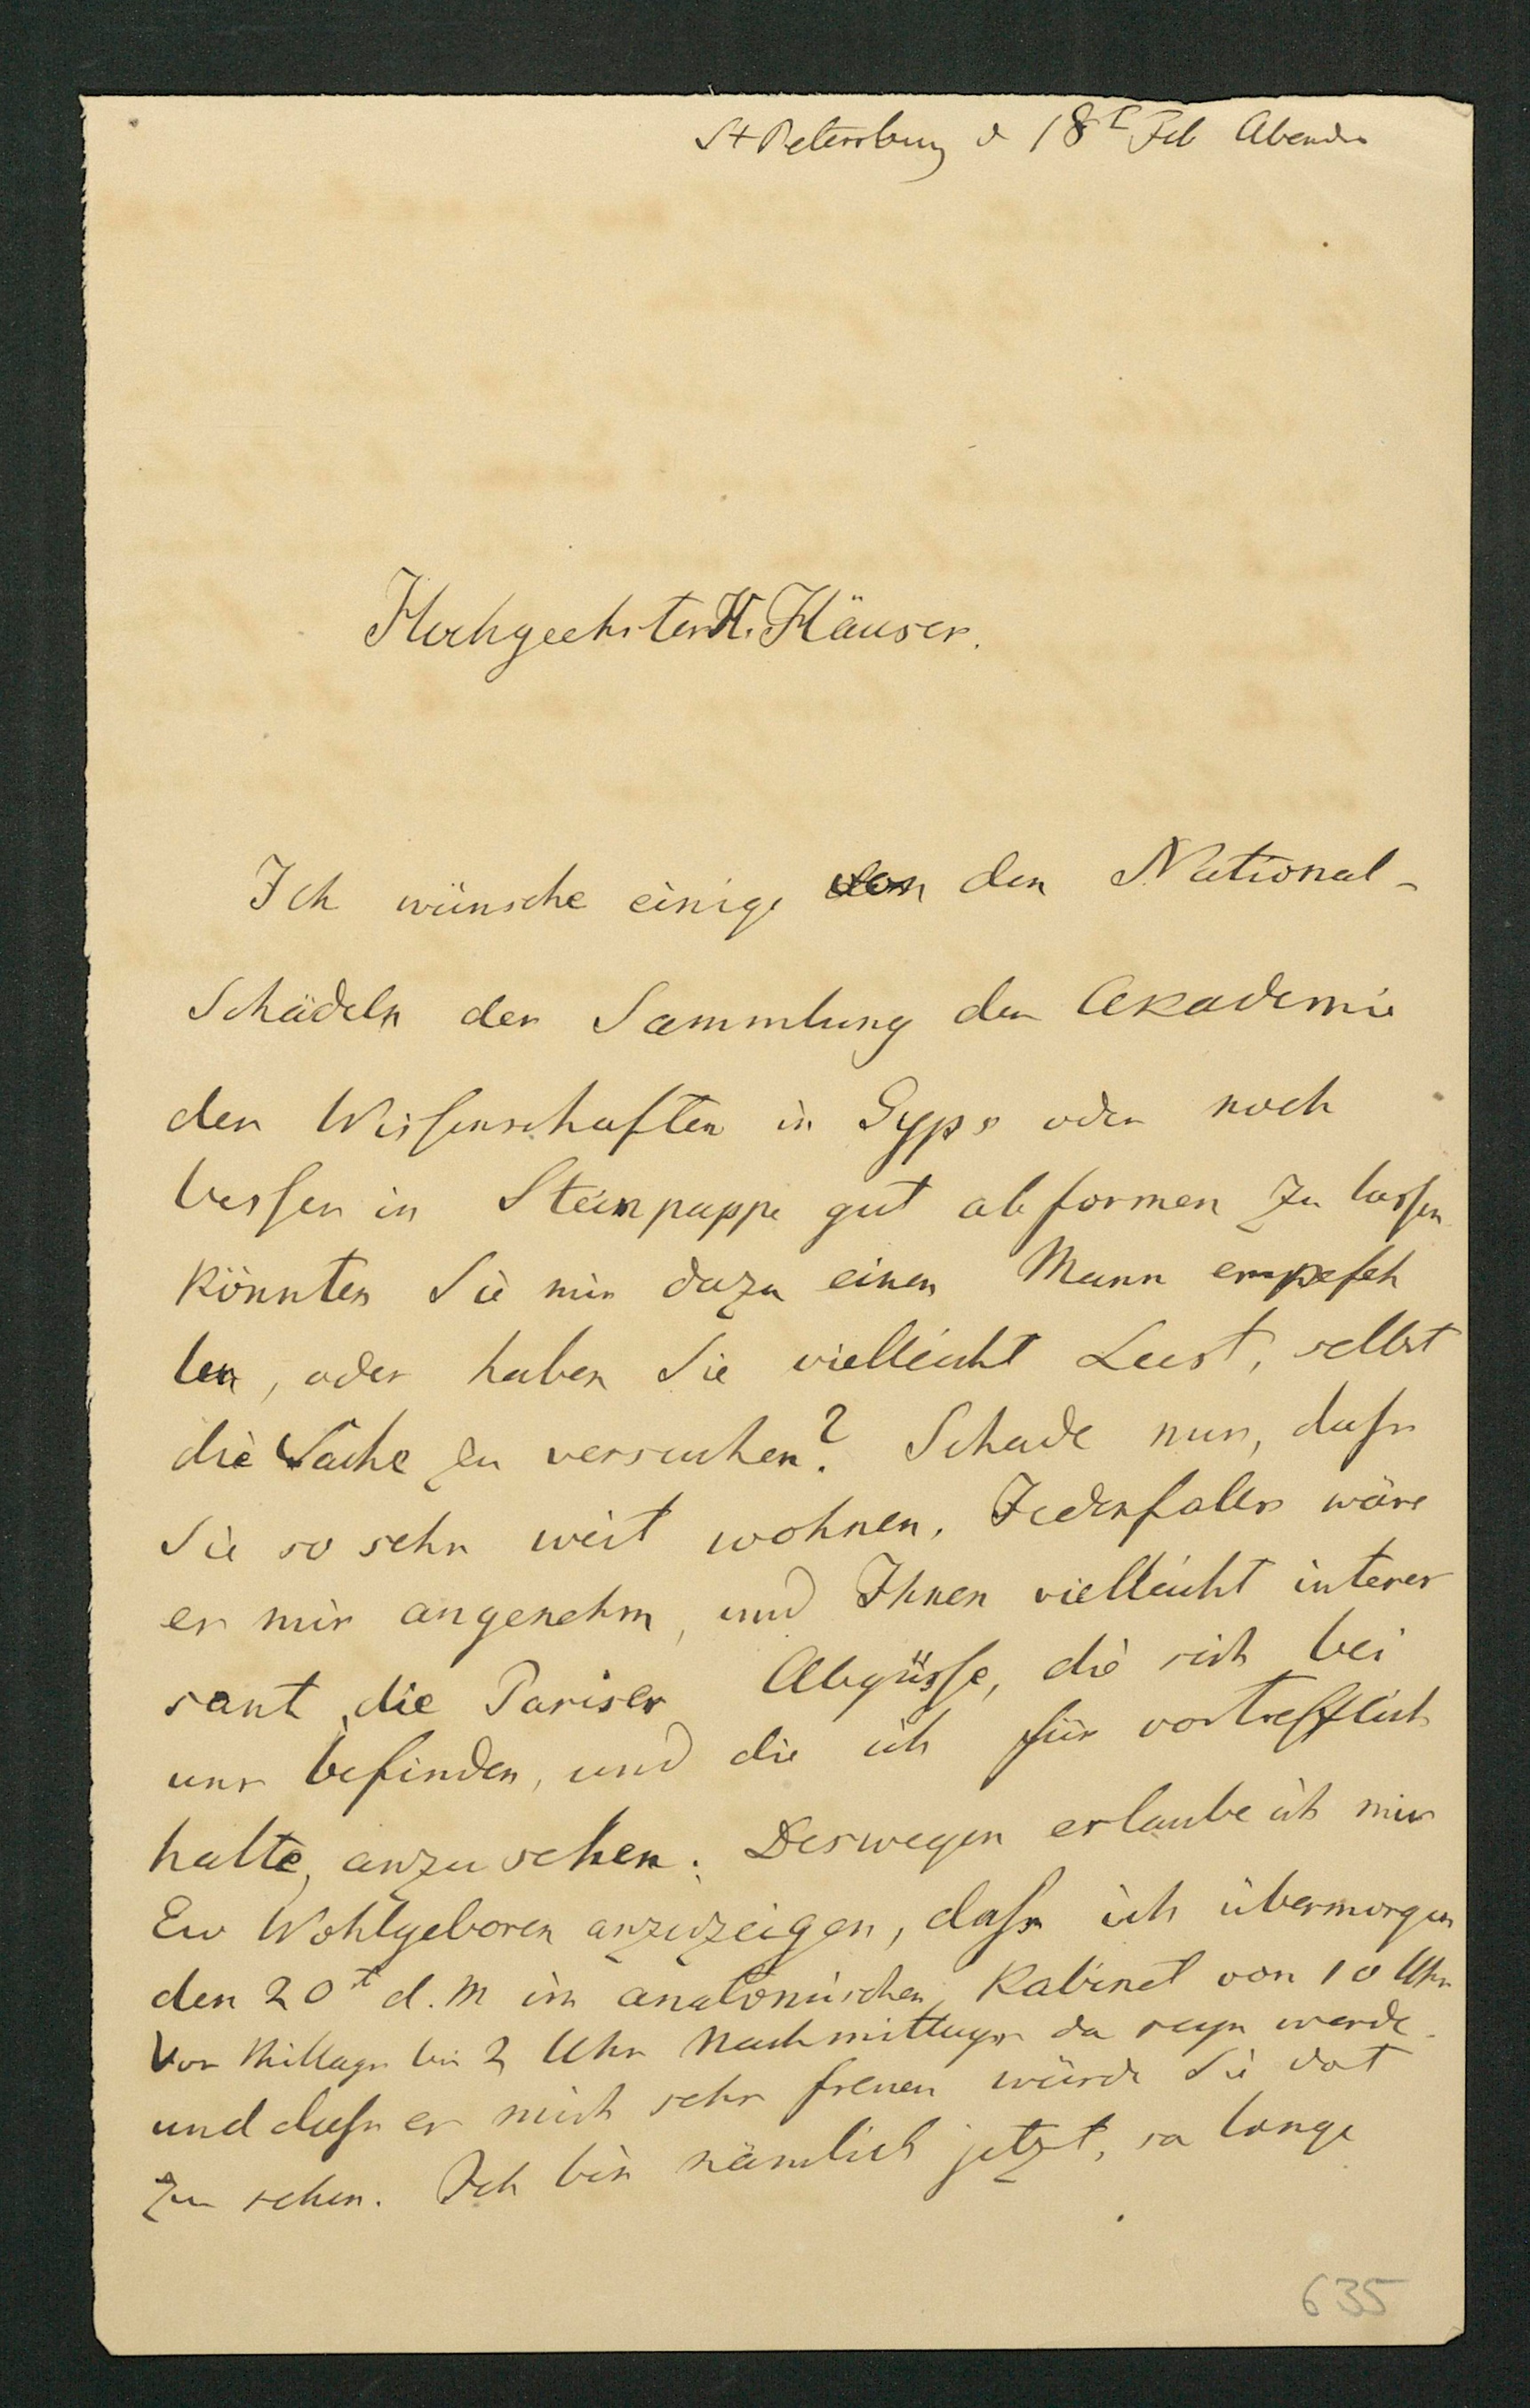 St Petersburg d 18t Feb Abends
Hochgeehrter H. Häuser.
Ich wünsche einige von den National-
Schädeln der Sammlung der Akademie
der Wissenschaften in Gyps oder noch
besser in Steinpappe gut abformen zu lassen
Könnten Sie mir dazu einen Mann empfeh
len, oder haben Sie vielleicht Lust, selbst
die Sache zu versuchen? Schade nur, dass
Sie so sehr weit wohnen. Jedenfalls wäre
es mir angenehm, und Ihnen vielleicht interes
sant, die Pariser Abgüsse, die sich bei
uns befinden, und die ich für vortrefflich
halte, anzusehen. Deswegen erlaube ich mir
Ew Wohlgeboren anzuzeigen, dass ich übermorgen
den 20t d. M im anatomischen Kabinet von 10 Uhr
Vor Mittags bis 2 Uhr Nachmittags da seyn werde
und dass es mich sehr freuen würde Sie dort
zu sehen. Ich bin nämlich jetzt, so lange
635